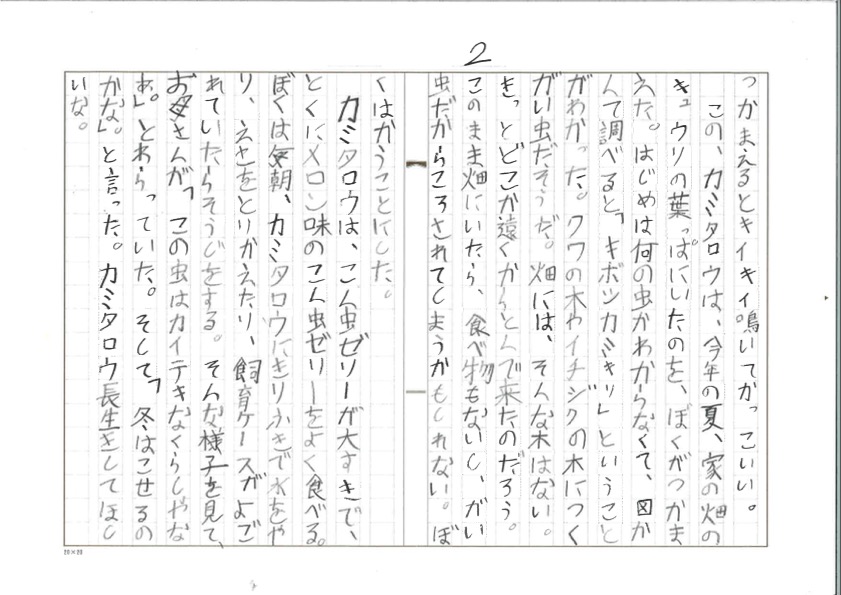 2
つかまえるとキイキイ鳴いてかっこいい。
この、カミタロウは、今年の夏、家の畑の
キュウリの葉っぱにいたのを、ぼくがつかま
えた。はじめは何の虫かわからなくて、図か
んで調べると「キボシカミキリ」ということ
がわかった。クワの木やイチジクの木につく
がい虫だそうだ。畑には、そんな木はない。
きっとどこか遠くからとんで来たのだろう。
このまま畑にいたら、食べ物もないし、がい
虫だからころされてしまうかもしれない。ぼ
くはかうことにした。
カミタロウは、こん虫ゼリーが大すきで、
とくにメロン味のこん虫ゼリーをよく食べる。
ぼくは毎朝、カミタロウにきりふきで水をや
り、えさをとりかえたり、飼育ケースがよご
れていたらそうじをする。そんな様子を見て、
お母さんが「この虫はカイテキなくらしやな
あ。」とわらっていた。そして「冬はこせるの
かな。」と言った。カミタロウ長生きしてほし
いな。
20×20